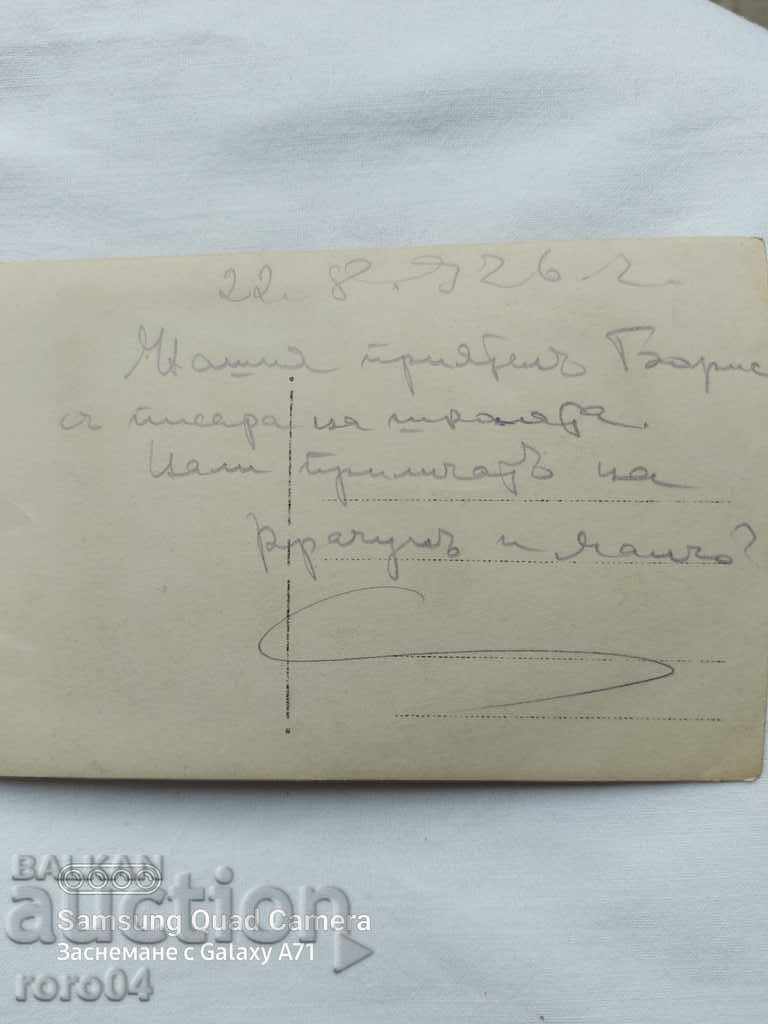 22. 8. 926 г.
Нашия приятель Борис
съ писаря на школата.
Нали приличатъ на
и Ганчо?
BALKAN
auction
Samsung Quad Camera
Заснемане с Galaxy A71
roro04